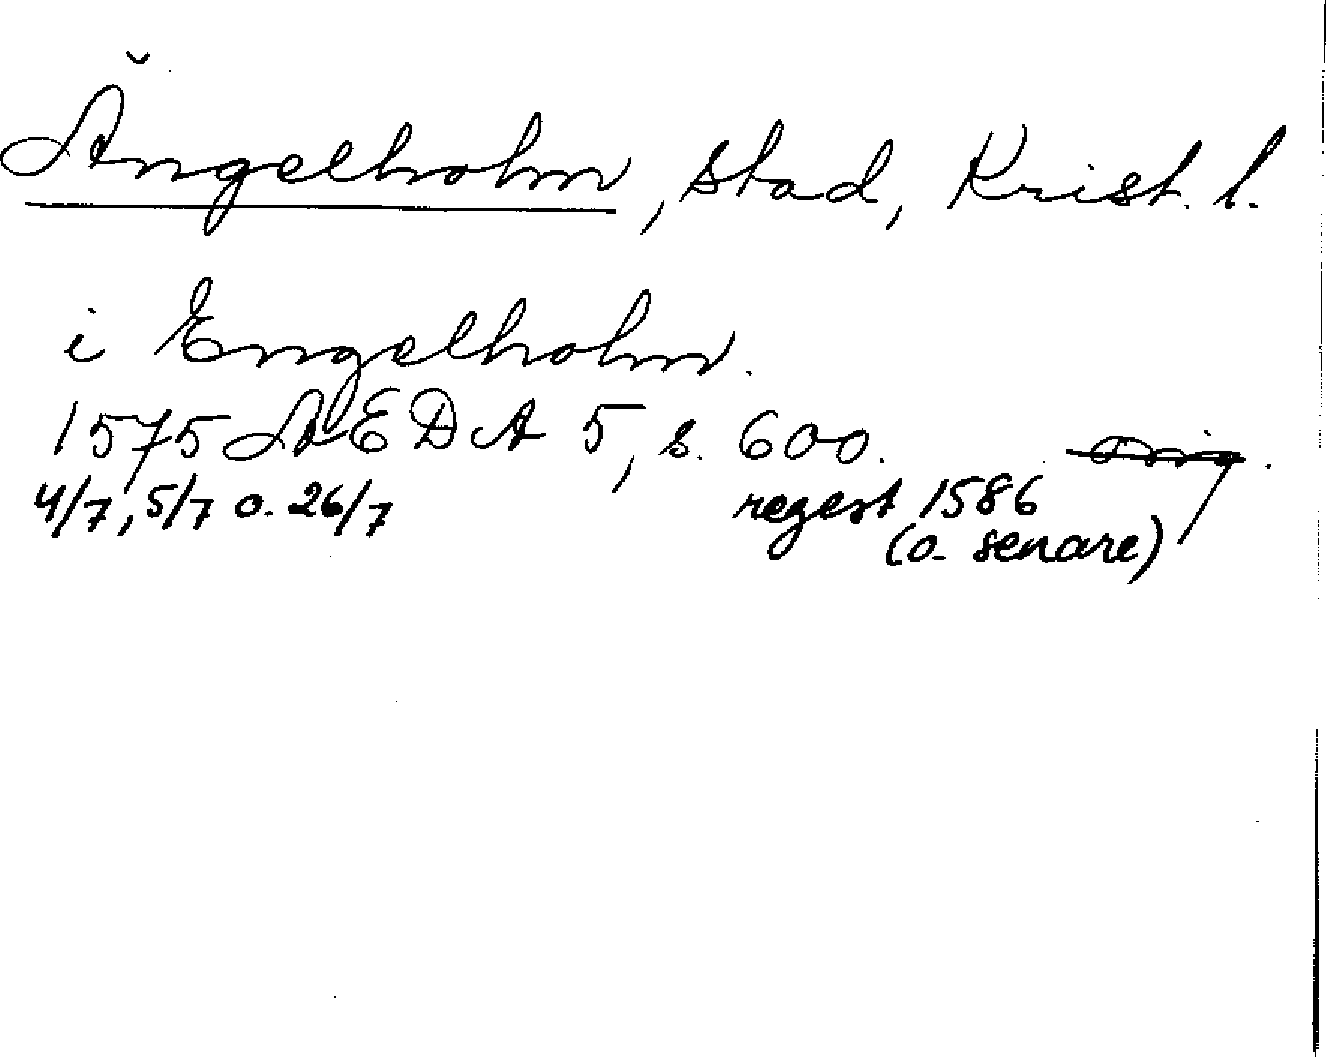 Ängelholm, stad, Krist. l.
i Engelholm.
1575 ÆEDA 5, s. 600. orig.
4/7, 5/7 o. 26/7 regest 1586
(o. senare)